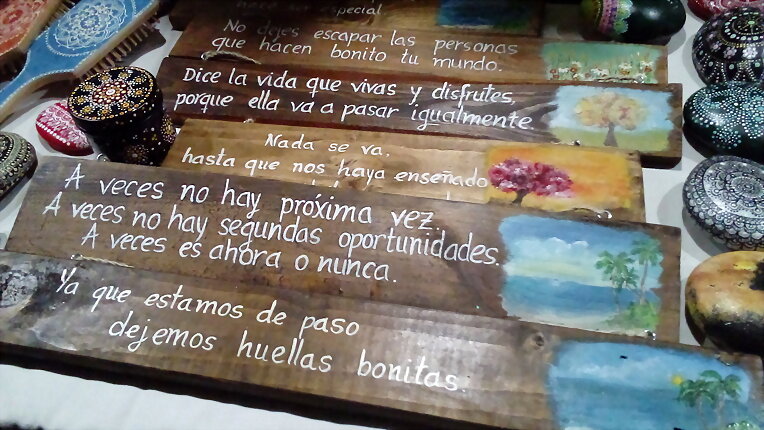 especial.
No dejes escapar las personas
que hacen bonito tu mundo.
Dice la vida que vivas y disfrutes,
porque ella va a pasar igualmente.
Nada se va,
hasta que nos haya enseñado
A veces no hay próxima vez.
A veces no hay segundas oportunidades.
A veces es ahora o nunca.
Ya que estamos de paso
dejemos huellas bonitas.